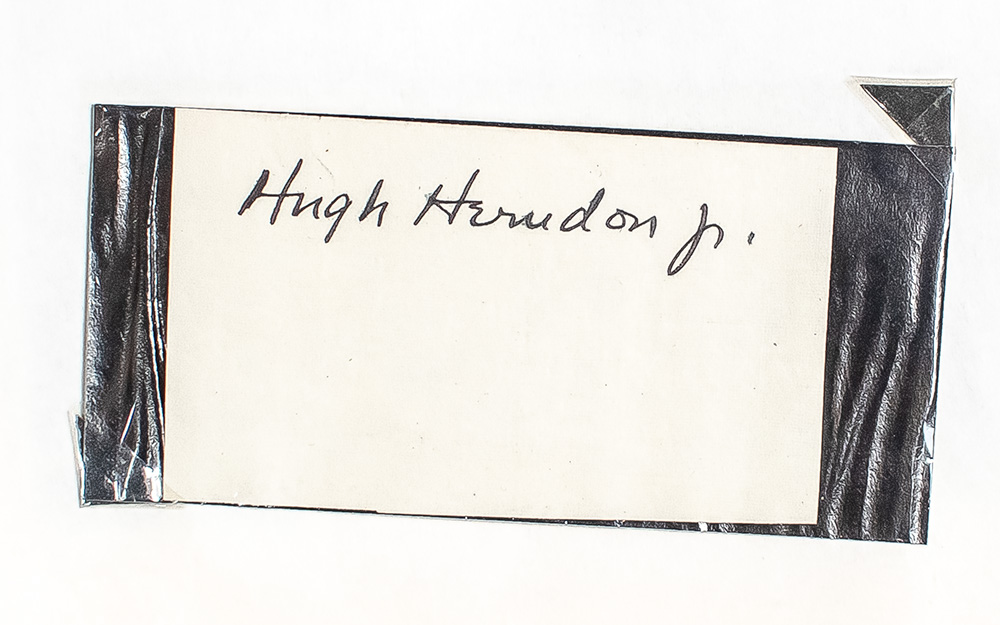 Hugh Herndon Jr.